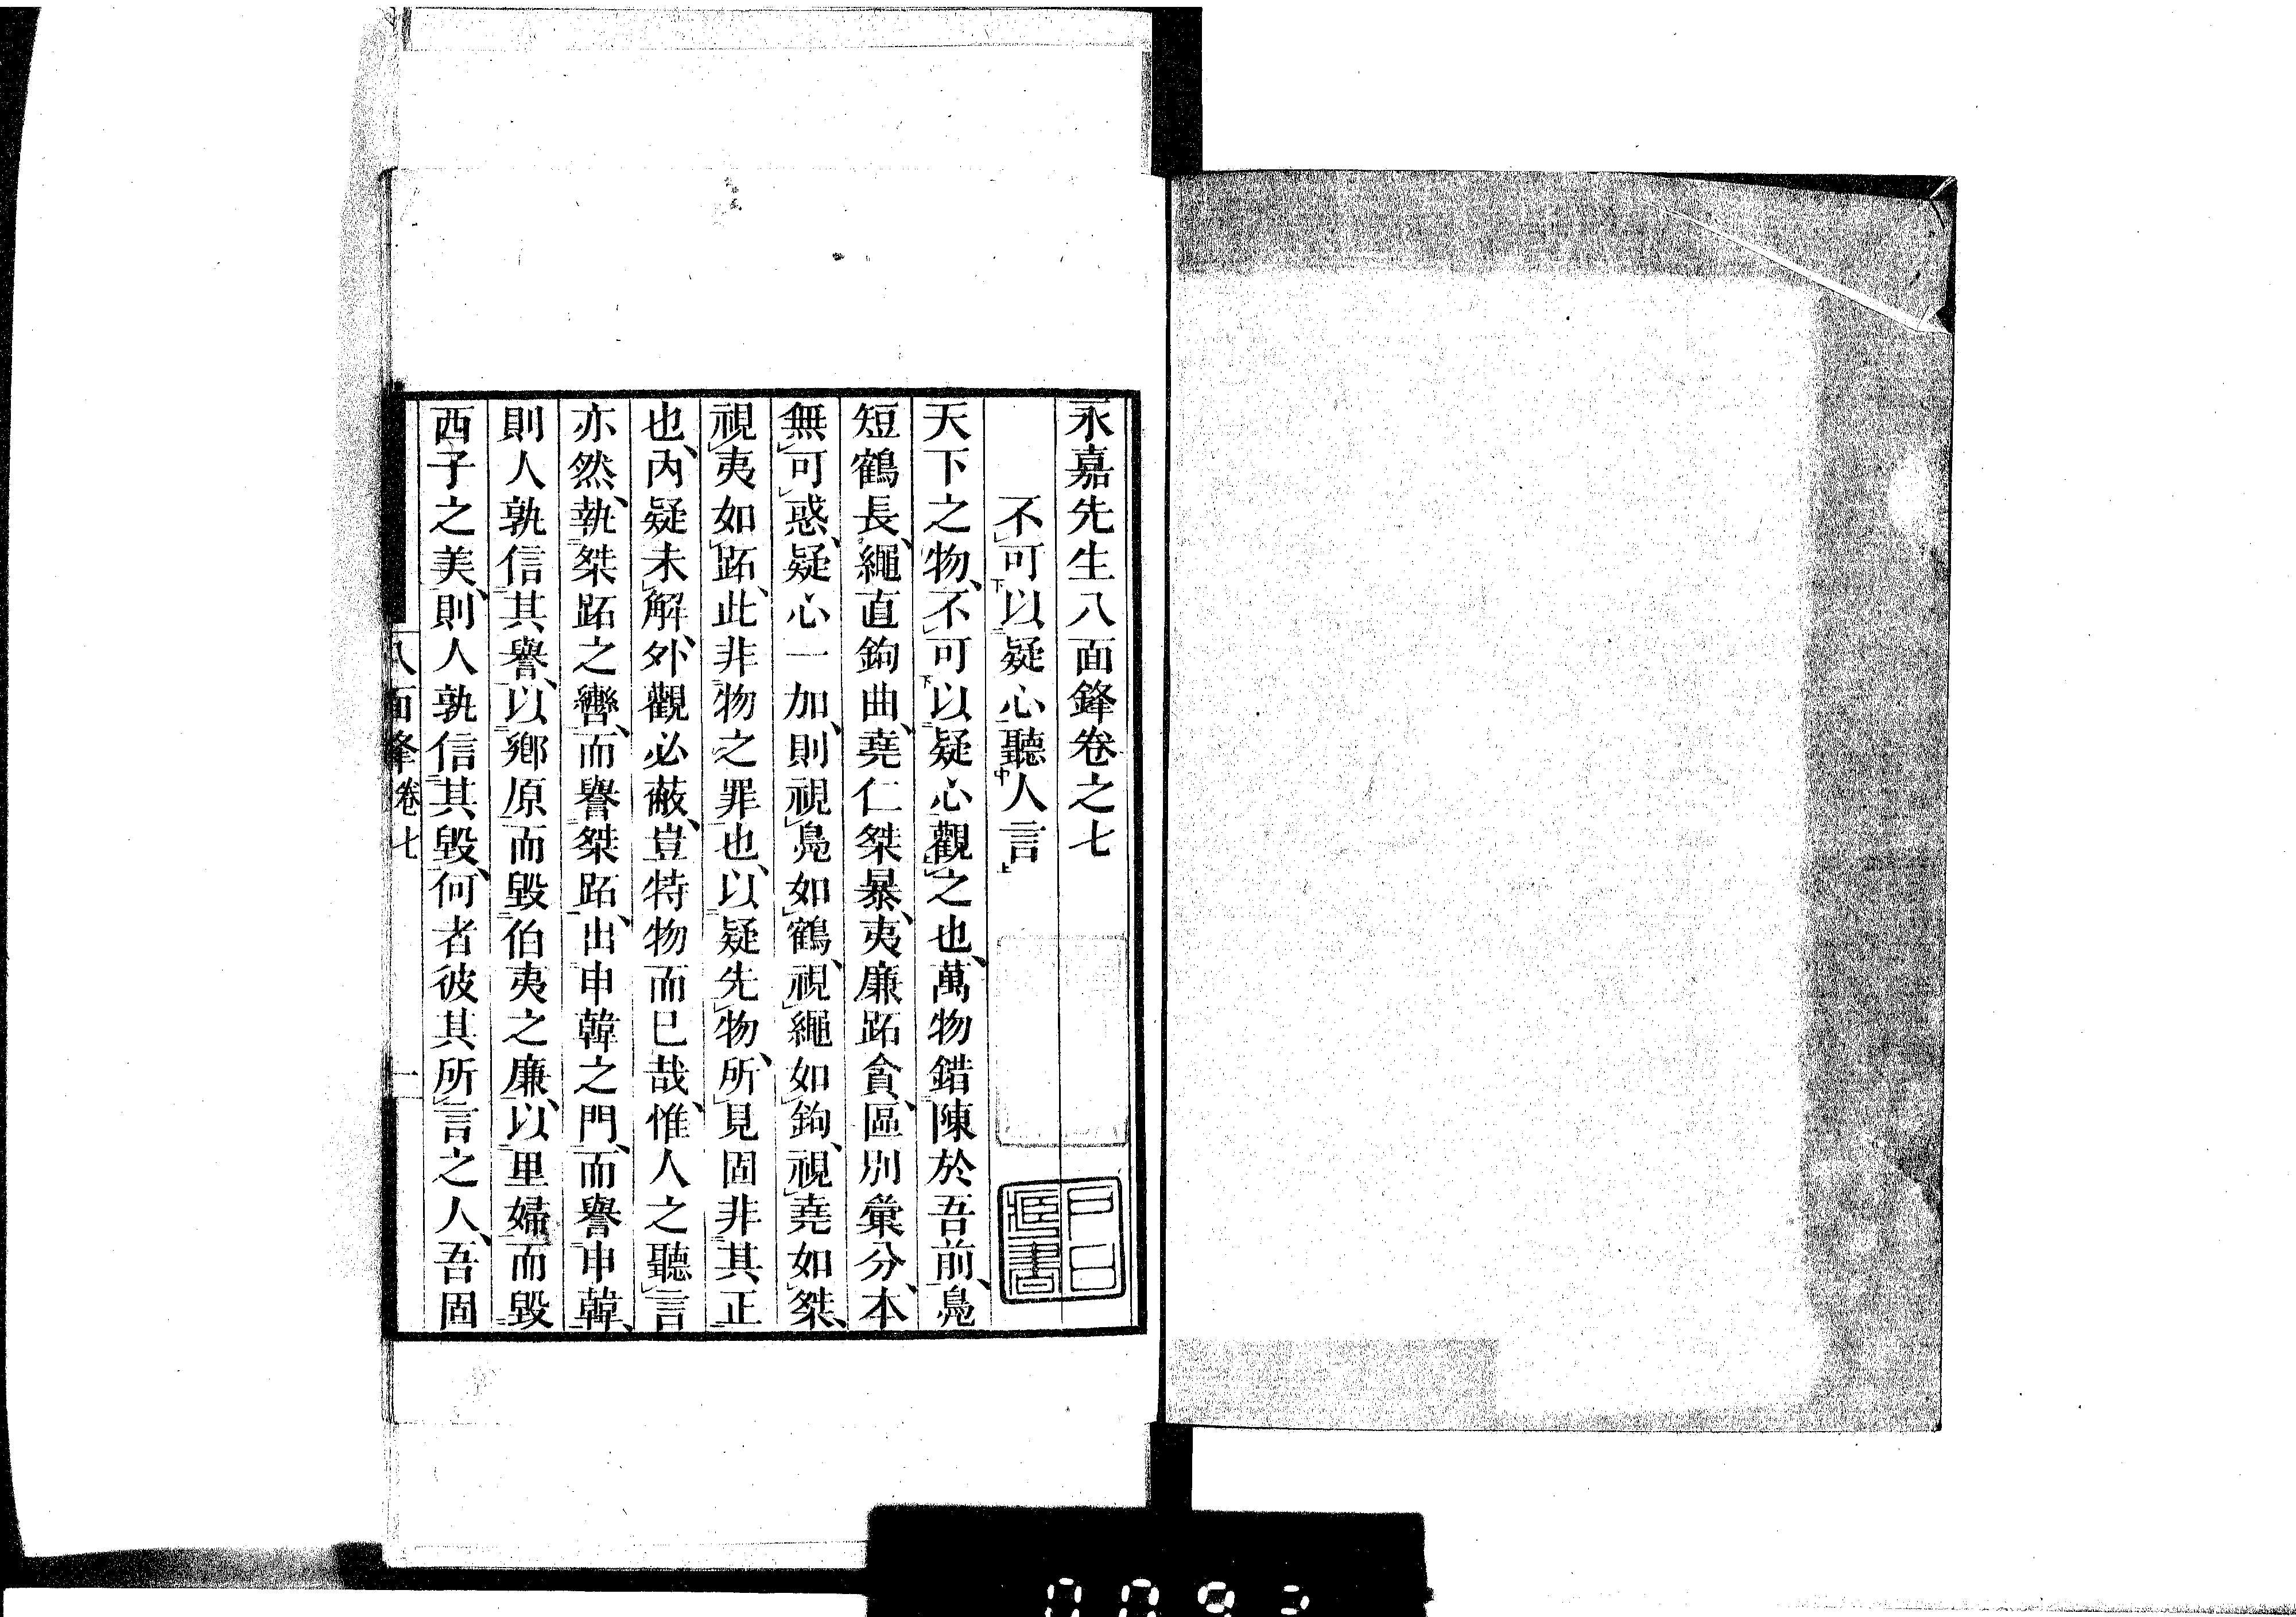 永嘉先生八面鋒卷之七
不可以疑心聽人言
天下之物、不可以疑心觀之也、萬物錯陳於吾前、鳧
短鶴長、繩直鉤曲、堯仁桀暴、夷廉跖貪、區別彙分、本
無可惑、疑心一加、則視鳧如鶴、視繩如鉤、視堯如桀、
視夷如跖、此非物之罪也、以疑先物、所見固非其正
也、內疑未解、外觀必蔽、豈特物而已哉、惟人之聽言
亦然、執桀跖之轡、而譽桀跖、出申韓之門、而譽申韓、
則人孰信其譽、以鄉原而毀伯夷之廉、以里婦而毀
西子之美、則人孰信其毀、何者彼其所言之人、吾固
八面鋒 卷七 一